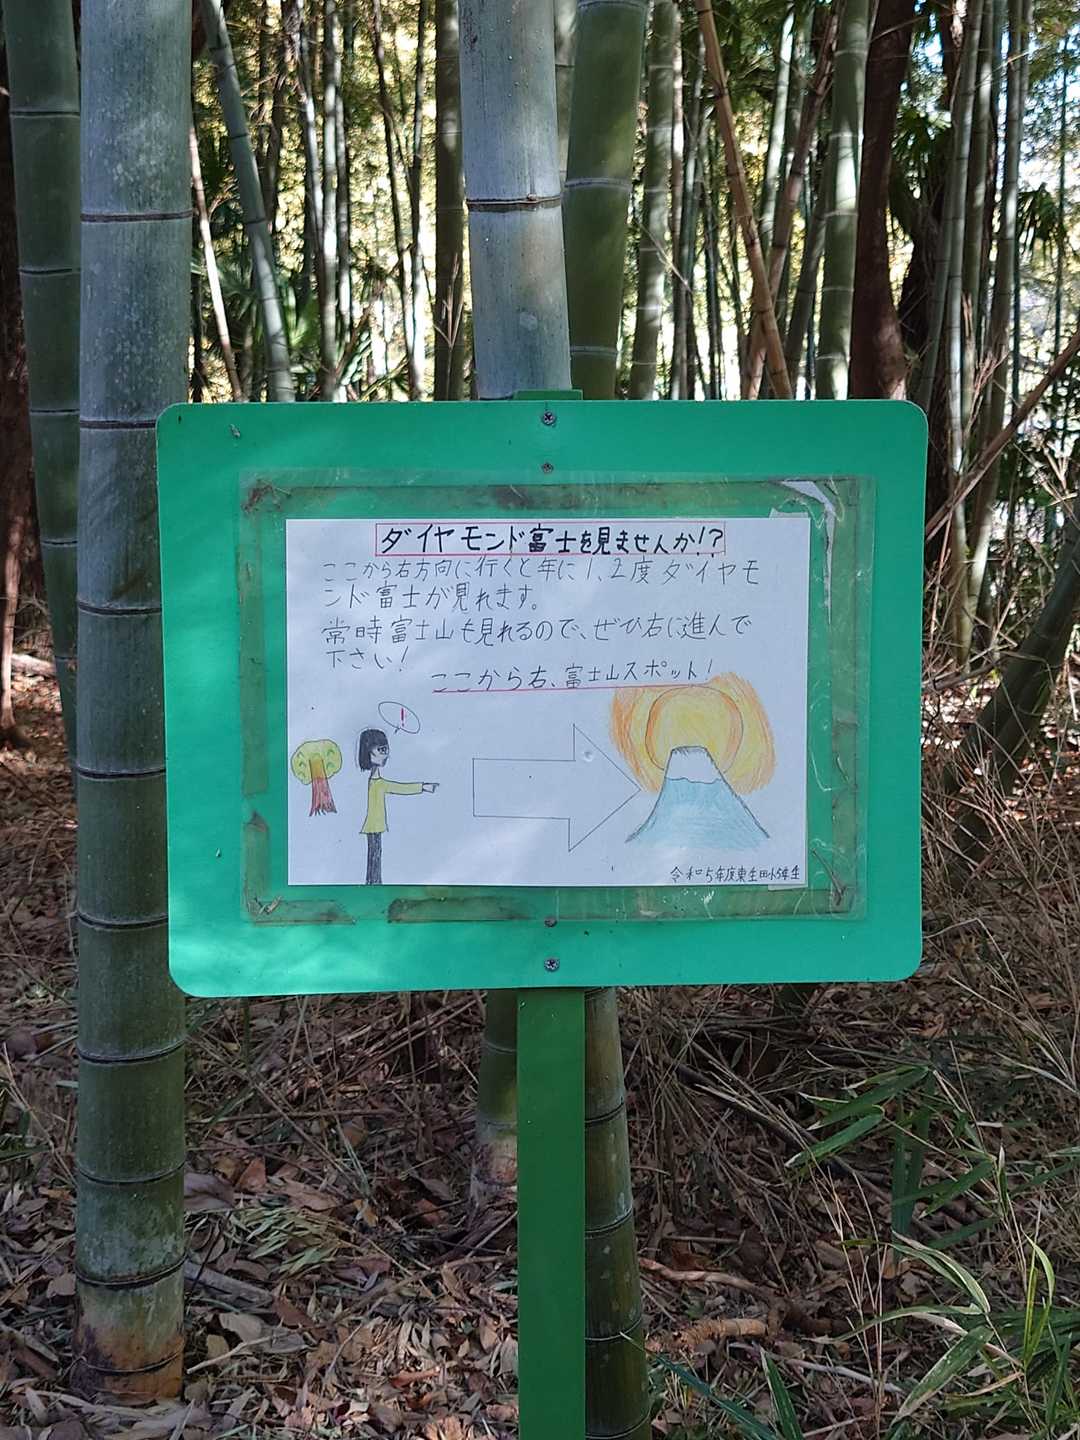 ダイヤモンド富士を見ませんか!?
ここから右方向に行くと年に1、2度ダイヤモ
ンド富士が見れます。
常時富士山も見れるので、ぜひ右に進んで
下さい!
ここから右、富士山スポット!
!
令和5年度東生田小5年生